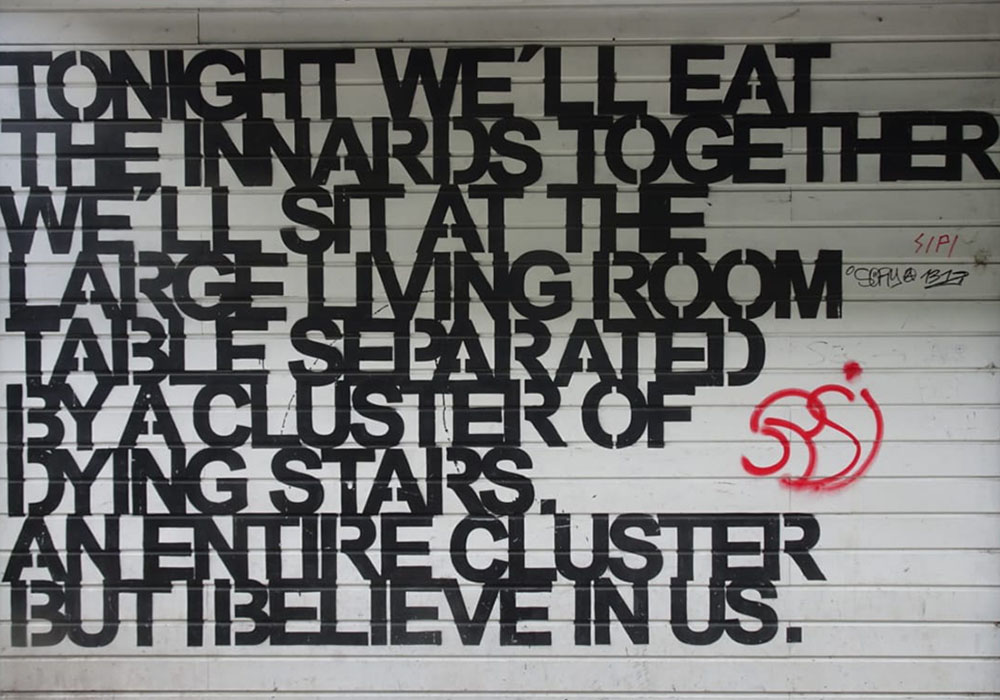 TONIGHT WE'LL EAT
THE INNARDS TOGETHER
WE'LL SIT AT THE
LARGE LIVING ROOM
TABLE SEPARATED
BY A CLUSTER OF
DYING STARS.
AN ENTIRE CLUSTER
BUT I BELIEVE IN US.
SIPI